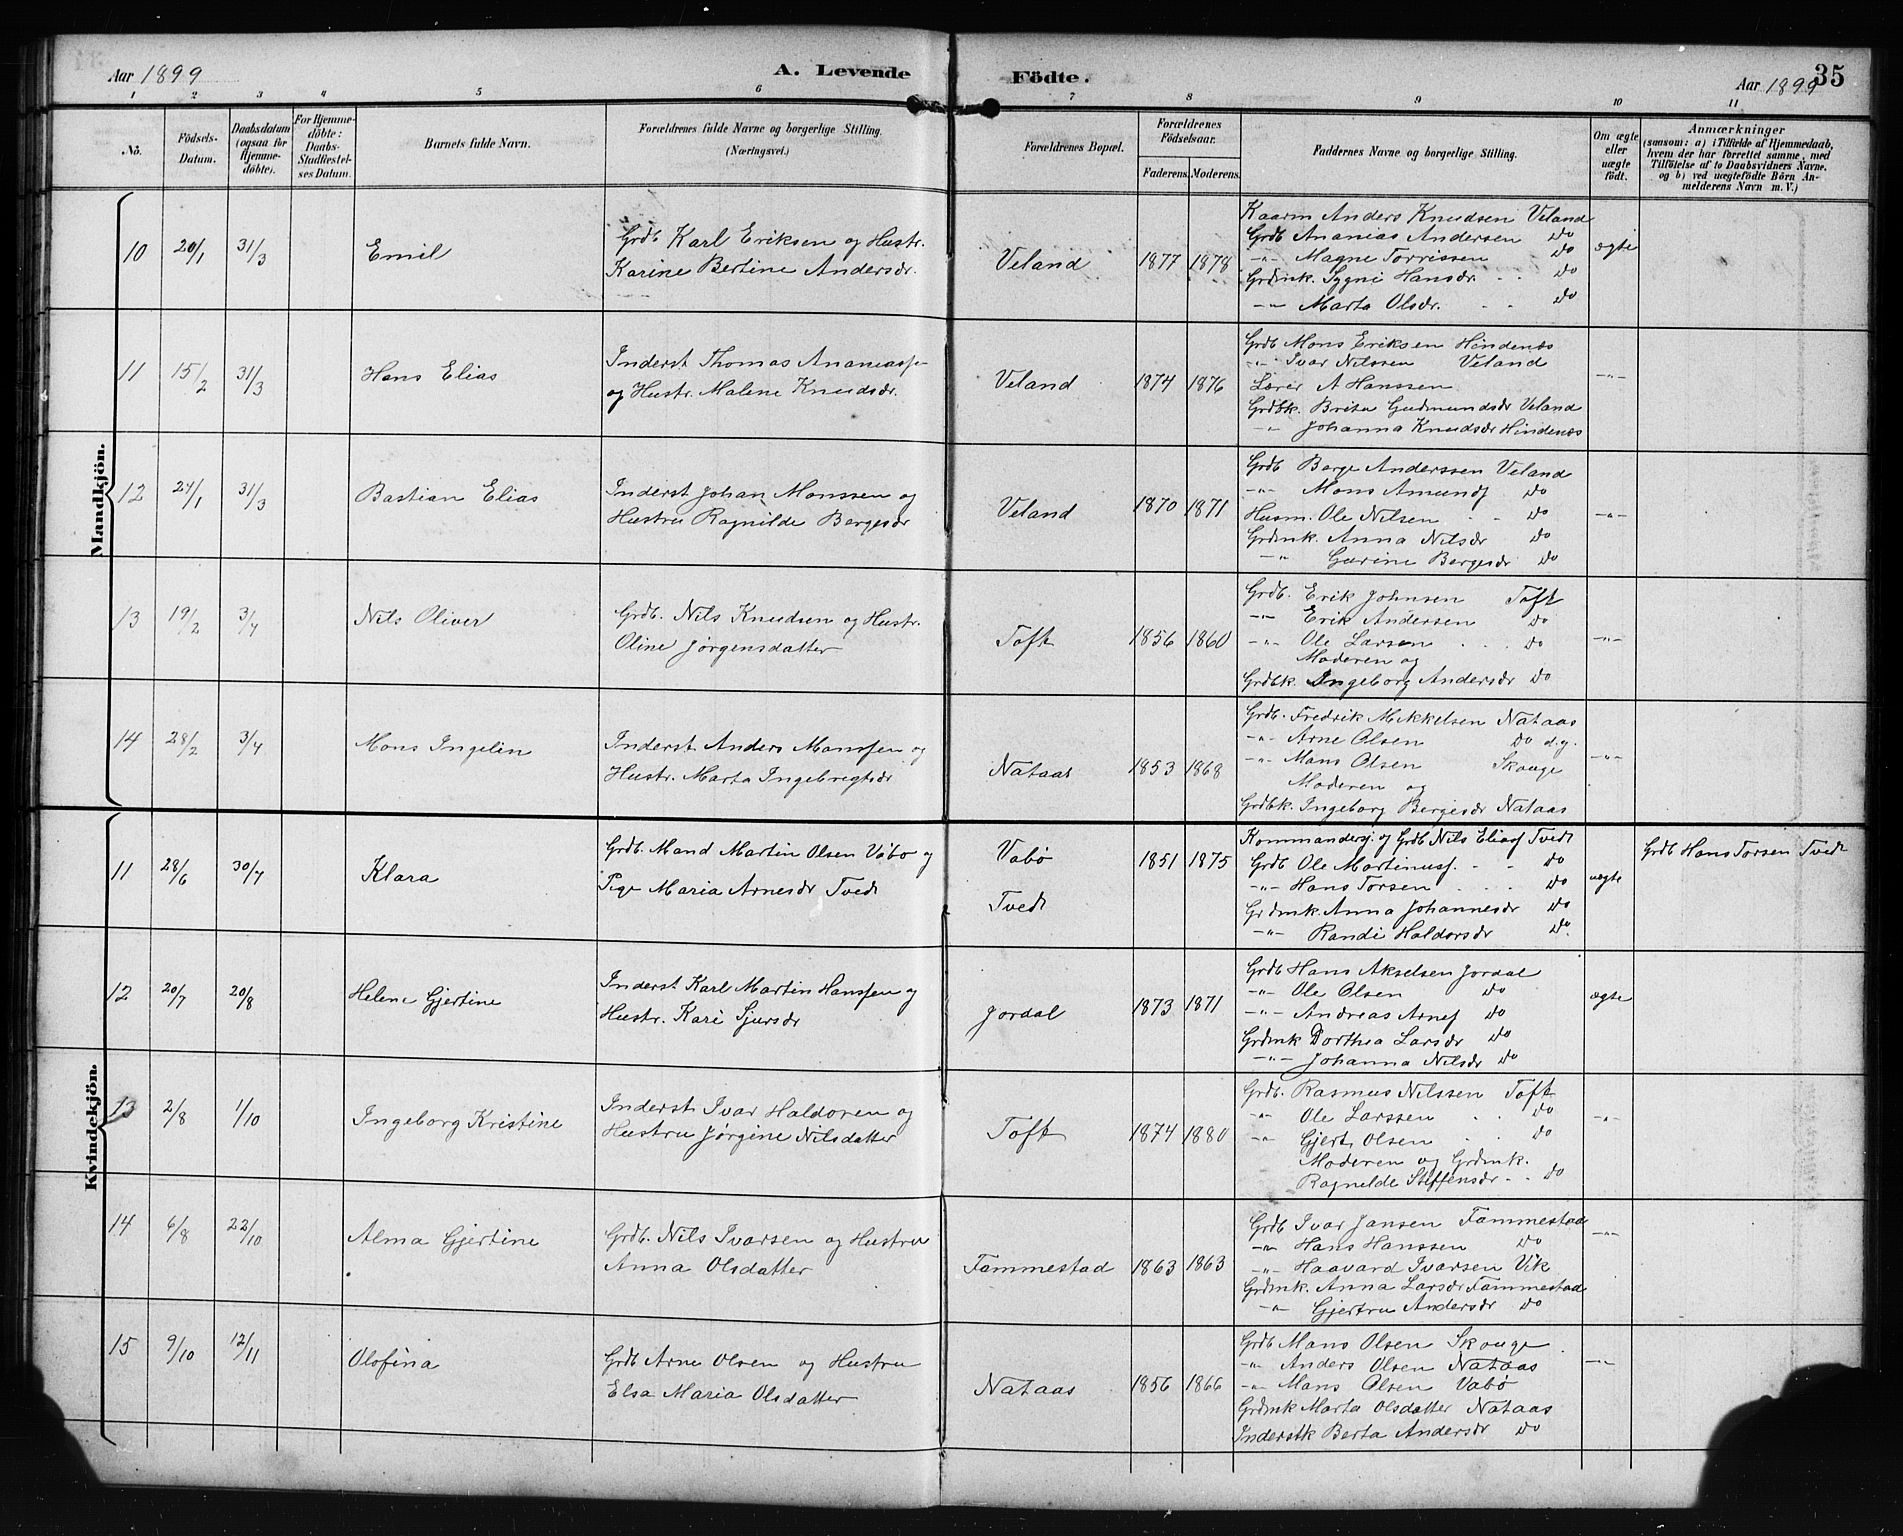 Aar 1899 A. Levende Födte. Aar 1899 35
1 2 3 4 5 6 7 8 9 10 11
Nö.
Födsels-Datum.
Daabsdatum (ogsaa för Hjemmedöbte).
For Hjemmedöbte: Daabs-Stadfæstelses Datum.
Barnets fulde Navn.
Forældrenes fulde Navne og borgerlige Stilling. (Næringsvei.)
Forældrenes Bopæl.
Forældrenes Födselsaar. Faderens. Moderens.
Faddernes Navne og borgerlige Stilling.
Om ægte eller uægte födt.
Anmærkninger
(saasom: a) i Tilfælde af Hjemmedaab,
hvem der har forrettet samme, med
Tilföielse af to Daabsvidners Navne.
og b) ved uægtefödte Börn An-
melderens Navn m. V.)
Mandkjön.
10 20/1 31/3 Emil
Grdb. Karl Eriksen og Hustr.
Karine Bertine Andersdr.
Veland 1877 1878
Kaarm Anders Knudsen Veland
Grdb Ananias Andersen Do
-"- Magne Torrissen Do
Grdmk. Sygni Hansdr. Do
-"- Marta Olsdr. Do
ægte
11 15/2 31/3 Hans Elias
Inderst Thomas Ananiass.
og Hustr. Malene Knudsdr.
Veland 1874 1876
Grdb Mons Eriksen Hindenæs
-"- Ivar Nilssen Veland
Lærer A Hanssen
Grdbk. Brita Gudmundsdr Veland
-"- Johanna Knudsdr Hindenæs
-"-
12 27/1 31/3 Bastian Elias
Inderst Johan Monssen og
Hustru Ragnilde Bergesdr
Veland 1870 1871
Grdb Berge Anderssen Veland
-"- Mons Amunds Do
Husm. Ole Nilsen Do
Grdmk. Anna Nilsdr Do
-"- Gurine Bergesdr Do
-"-
13 19/2 3/4 Nils Oliver
Grdb. Nils Knudsen og Hustr.
Oline Jørgensdatter
Toft 1856 1860
Grdb. Erik Johnsen Toft
-"- Erik Andersen Do
-"- Ole Larsen Do
Moderen og
Grdbk. Ingeborg Andersdr Do
-"-
14 28/2 3/4 Mons Ingelin
Inderst Anders Monssen og
Hustr. Marta Ingebregtsdr
Nataas 1853 1868
Grdb. Fredrik Mikkelsen Nataas
-"- Arne Olsen Do d.y.
-"- Mons Olsen Skouge
Moderen og
Grdbk. Ingeborg Bergesdr Nataas
-"-
Kvindekjön.
11 28/6 30/7 Klara
Grdb. Mand Martin Olsen Vabø og
Pige Maria Arnesdr Tvedt
Vabø
Tvedt
1851 1875
Kommandersj. og Grdb Nils Elias Tvedt
Grdb Ole Martinuss. Do
-"- Hans Torsen Do
Grdmk. Anna Johannesdr Do
-"- Randi Haldorsdr Do.
uægte
Grdb Hans Torsen Tvedt
12 20/7 20/8 Helene Gjertine
Inderst Karl Martin Hanssen og
Hustr. Kari Sjursdr
Jordal 1873 1871
Grdb Hans Akselsen Jordal
-"- Ole Olsen Do
-"- Andreas Arnes Do
Grdmk Dorthea Larsdr Do
-"- Johanna Nilsdr Do
ægte
13 2/8 1/10 Ingeborg Kristine
Inderst Ivar Haldoren og
Hustru Jørgine Nilsdatter
Toft 1874 1880
Grdb. Rasmus Nilssen Toft
-"- Ole Larssen Do
-"- Gjert Olsen Do
Moderen og Grdmk.
Ragnilde Steffensdr Do
-"-
14 6/8 22/10 Alma Gjertine
Grdb. Nils Ivarsen og Hustru
Anna Olsdatter
Fammestad 1863 1863
Grdb Ivar Jansen Fammestad
-"- Hans Hanssen Do
-"- Haavard Ivarsen Vik
Grdmk. Anna Larsdr Fammestad
-"- Gjertru Andersdr Do
-"-
15 9/10 12/11 Olofina
Grdb Arne Olsen og Hustru
Elsa Maria Olsdatter
Nataas 1856 1866
Grdb Mons Olsen Skouge
-"- Anders Olsen Nataas
-"- Mons Olsen Vabø
Grdmk Marta Olsdatter Nataas
Inderstk Berta Andersdr Do
-"-